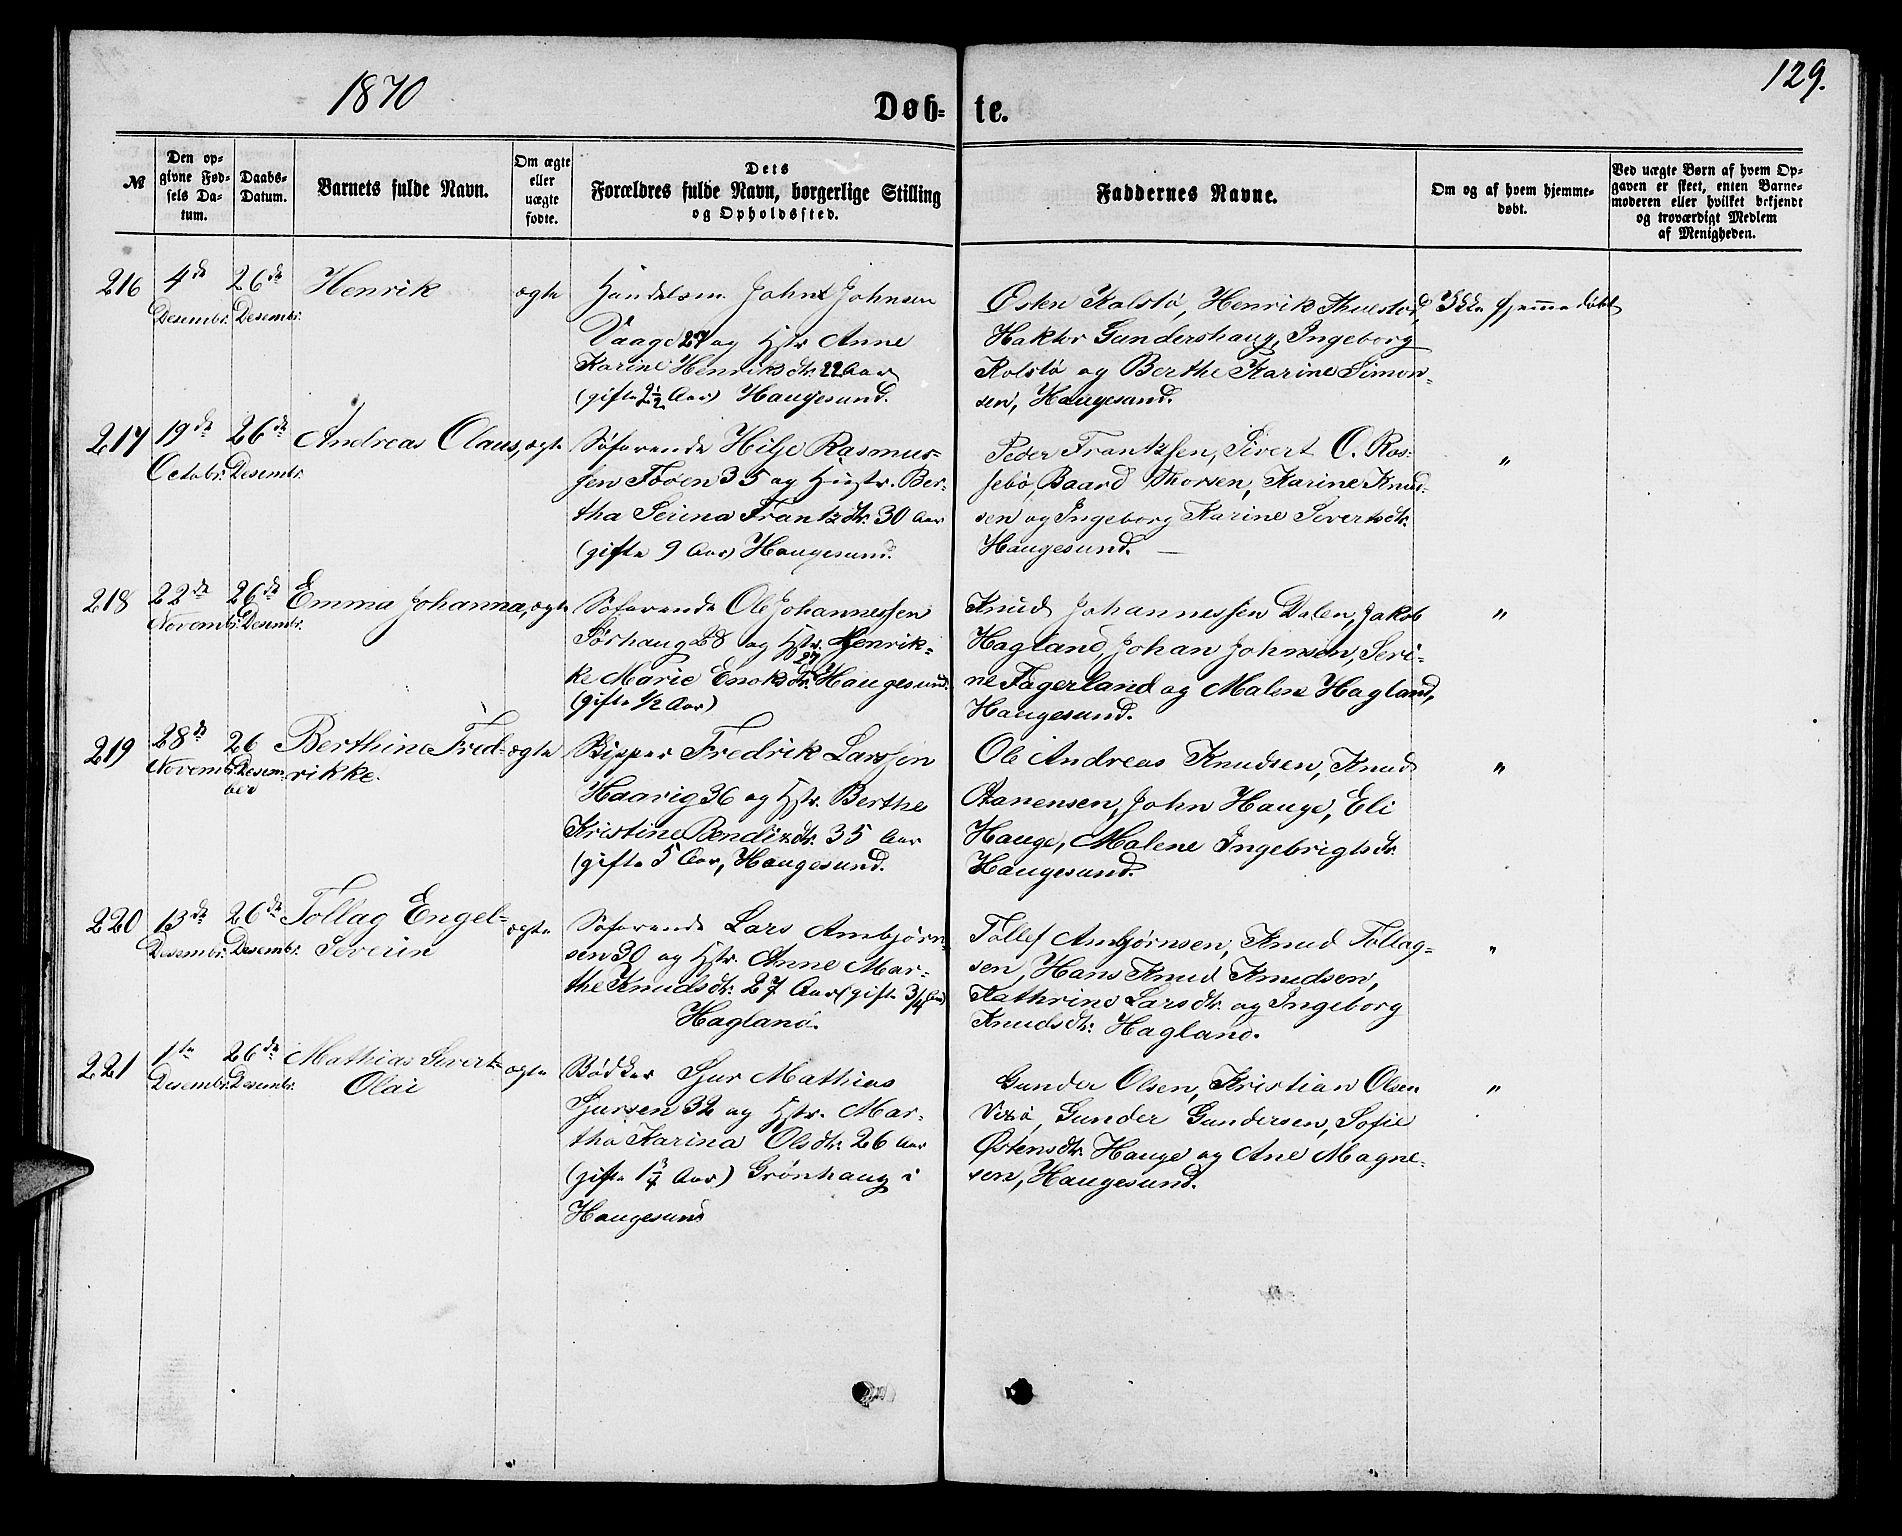 1870
129.
Døb-te.
№
Den op-
givne Fød-
sels Da-
tum.
Daabs-
Datum.
Barnets fulde Navn.
Om ægte
eller
uægte
fødte.
Dets
Forældres fulde Navn, borgerlige Stilling
og Opholdssted.
Faddernes Navne.
Om og af hvem hjemme-
døbt.
Ved uægte Børn af hvem Op-
gaven er skeet, enten Barne-
moderen eller hvilket bekjendt
og troværdigt Medlem
af Menigheden.
216
4de
Desembr.
26de
Desembr.
Henrik
ægte
Handelsm. John Johnsen
Vaage 27 og Hstr. Anne
Karine Henriksdtr. 22 Aar
(gifte 2½ Aar) Haugesund.
Østen Kolstø, Henrik
Haktor Gundershaug, Ingeborg
Kolstø og Berthe Karine Simon-
sen, Haugesund.
Ikke hjemmedøbt
217
19de
Octobr.
26de
Desembr.
Andreas Olaus,
ægte
Søfarende Hilje Rasmus-
sen Føven 35 og Hustr. Ber-
tha Serina Frantzdtr. 30 Aar
(gifte 9 Aar) Haugesund.
Peder Frantzsen, Sivert O. Ros-
sebø, Baard Thorsen, Karine Knud-
sen og Ingeborg Karine Sivertsdtr.
Haugesund. —
"
218
22de
Novembr.
26de
Desembr.
Emma Johanna,
ægte
Søfarende Ole Johannessen
Sørhaug 28 og Hstr. Henrik-
27
ke Marie Enoksdtr. Haugesund.
(gifte 1/2 Aar)
Knud Johannessen Dalen, Jakob
Hagland, Johan Johnsen, Seri-
ne Fagerland og Malene Hagland,
Haugesund.
"
219
28de
Novemb.
26
Desem-
ber
Berthine Fred-
rikke.
ægte
Skipper Fredrik Larssen
Haavig 36 og Hstr. Berthe
Kristine Bendixdtr. 35 Aar
(gifte 5 Aar, Haugesund.
Ole Andreas Knudsen, Knud
Aanensen, John Hauge, Eli
Hauge, Malene Ingebrigtsdtr.
Haugesund.
"
220
13de
Desembr.
26de
Desembr.
Tollag Engel-
Severin
ægte
Søfarende Lars Ambjørn-
sen 30 og Hstr. Anne Mar-
the Knudsdtr. 27 Aar (gifte 3/4 Aar)
Hagland.
Tollef Ambjørnsen, Knud Tollag-
sen, Hans Knud Knudsen,
Kathrine Larsdtr. og Ingeborg
Knudsdtr. Hagland.
"
221
1te
Desembr.
26de
Desembr.
Mathias Sivert
Olai
ægte
Bødker Sjur Mathias
Sjursen 32 og Hstr. Mar-
tha Karina Olsdtr. 26 Aar
(gifte 1¾ Aar) Grønhaug i
Haugesund
Gunder Olsen, Kristian Olsen
Gunder Gundersen, Sofie
Østensdtr. Hauge og Ane Magne-
sen, Haugesund.
"